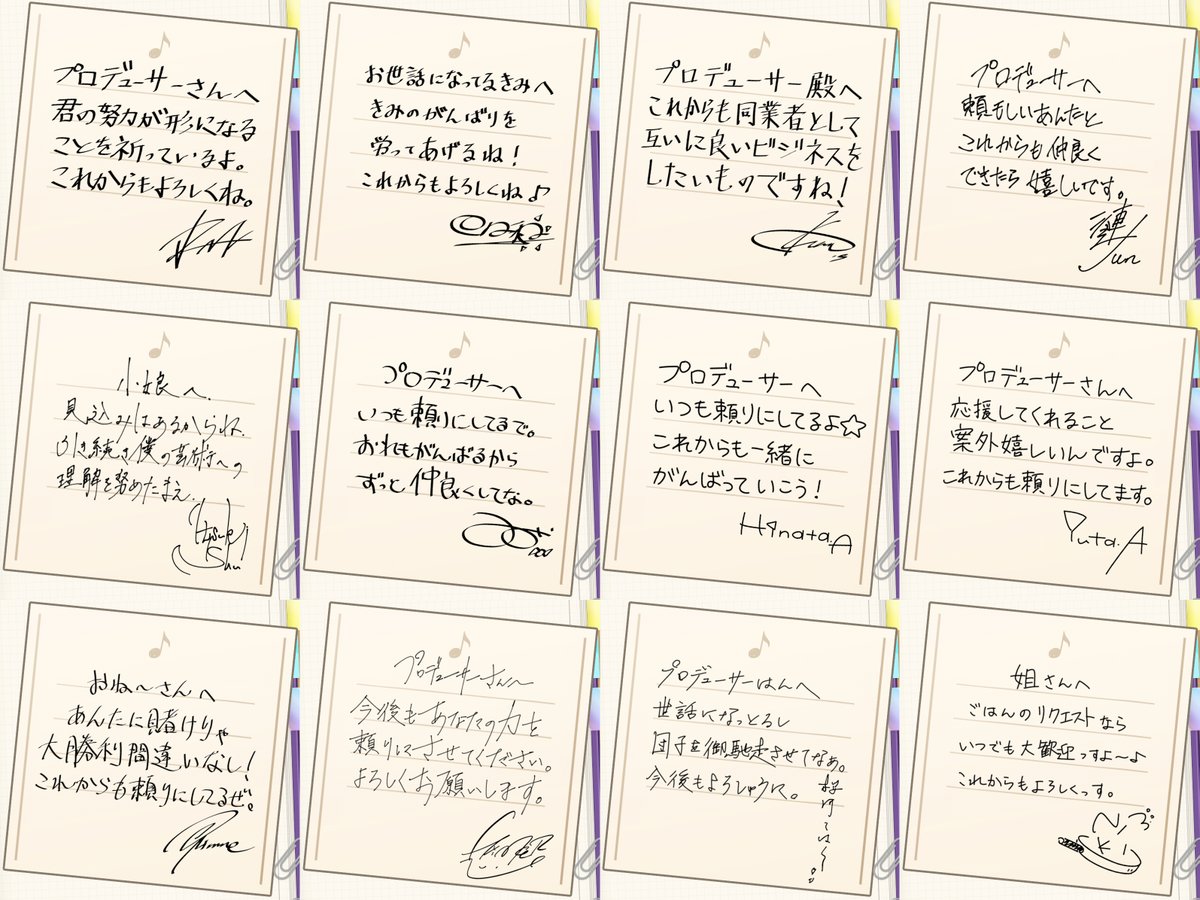 プロデューサーさんへ
君の努力が形になる
ことを祈っているよ。
これからもよろしくね。
お世話になってるきみへ
きみのがんばりを
労ってあげるね！
これからもよろしくね♪
日和
プロデューサー殿へ
これからも同業者として
互いに良いビジネスを
したいものですね！
プロデューサーへ
頼もしいあんたと
これからも仲良く
できたら嬉しいです。
漣
Jun
小娘へ.
見込みはあるからね.
引き続き僕の芸術への
理解を努めたまえ.
Itsuki
Shu
プロデューサーへ
いつも頼りにしてるで。
おれもがんばるから
ずっと仲良くしてな。
プロデューサーへ
いつも頼りにしてるよ☆
これからも一緒に
がんばっていこう！
Hinata.A
プロデューサーさんへ
応援してくれること
案外嬉しいんですよ。
これからも頼りにしてます。
Yuta.A
おね〜さんへ
あんたに賭けりゃ
大勝利間違いなし！
これからも頼りにしてるぜ。
プロデューサーさんへ
今後もあなたの力を
頼りにさせてください。
よろしくお願いします。
プロデューサーはんへ
世話になっとるし
団子を御馳走させてなぁ。
今後もよろしゅうに。
姐さんへ
ごはんのリクエストなら
いつでも大歓迎っすよ〜♪
これからもよろしくっす。